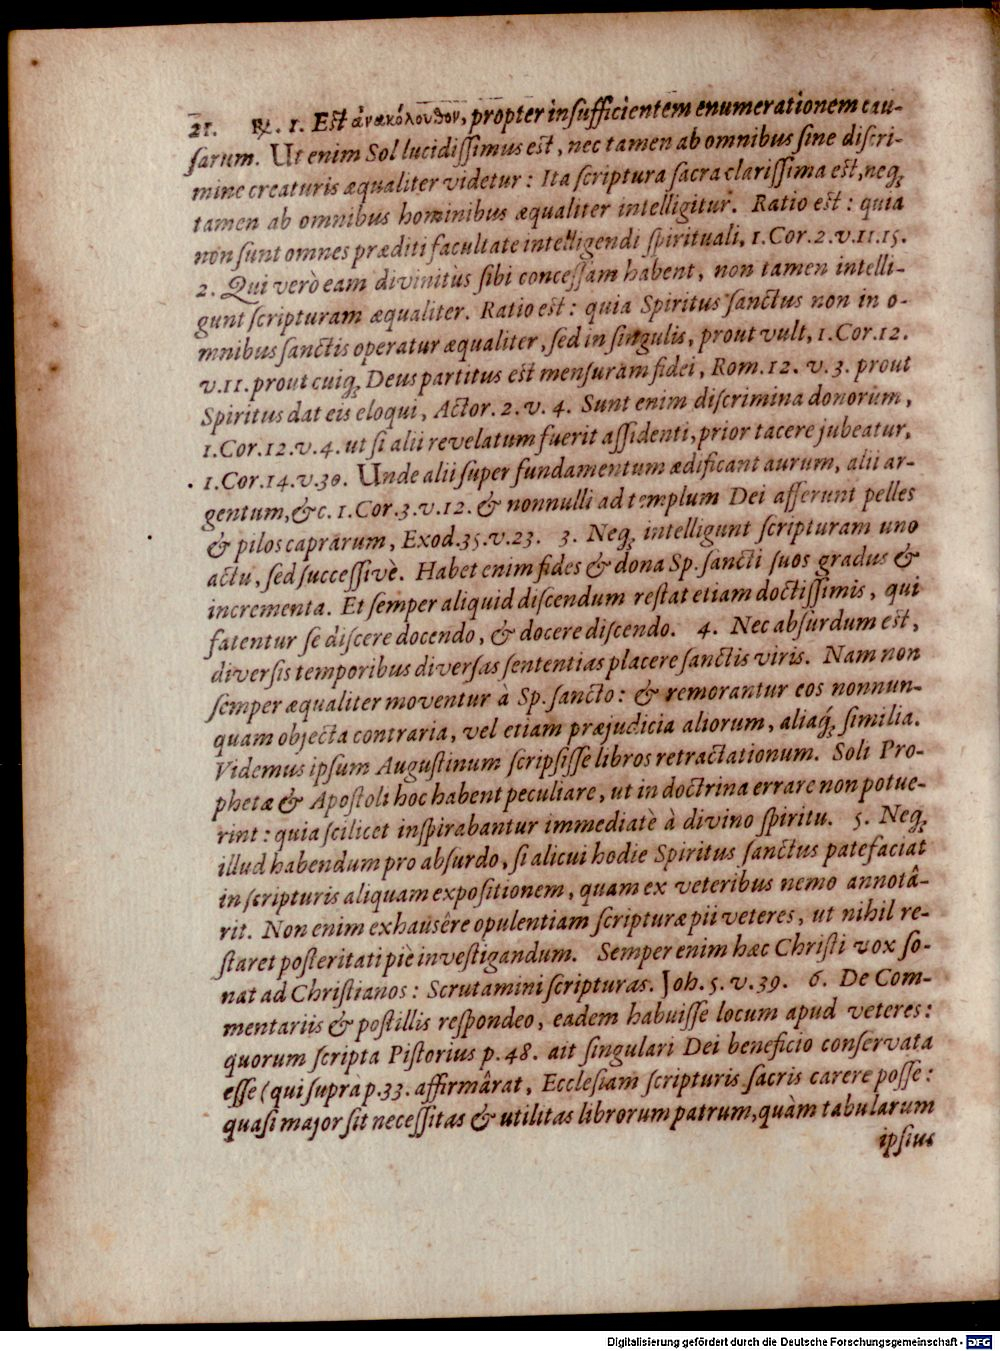 21. ℞. 1. Est ἀνακόλουθον, propter insufficientem enumerationem cau-
sarum. Ut enim Sol lucidissimus est, nec tamen ab omnibus sine discri-
mine creaturis æqualiter videtur: Ita scriptura sacra clarissima est, neq́;
tamen ab omnibus hominibus æqualiter intelligitur. Ratio est: quia
non sunt omnes præditi facultate intelligendi spirituali, 1. Cor. 2. v. 11. 15.
2. Qui verò eam divinitùs sibi concessam habent, non tamen intelli-
gunt scripturam æqualiter. Ratio est: quia Spiritus sanctus non in o-
mnibus sanctis operatur æqualiter, sed in singulis, prout vult, 1. Cor. 12.
v. 11. prout cuiq; Deus partitus est mensuram fidei, Rom. 12. v. 3. prout
Spiritus dat eis eloqui, Actor. 2. v. 4. Sunt enim discrimina donorum,
1. Cor. 12. v. 4. ut si alii revelatum fuerit assidenti, prior tacere jubeatur,
1. Cor. 14. v. 30. Unde alii super fundamentum ædificant aurum, alii ar-
gentum, &c. 1. Cor. 3. v. 12. & nonnulli ad templum Dei afferunt pelles
& pilos caprarum, Exod. 35. v. 23. 3. Neq; intelligunt scripturam uno
actu, sed successivè. Habet enim fides & dona Sp. sancti suos gradus &
incrementa. Et semper aliquid discendum restat etiam doctissimis, qui
fatentur se discere docendo, & docere discendo. 4. Nec absurdum est,
diversis temporibus diversas sententias placere sanctis viris. Nam non
semper æqualiter moventur à Sp. sancto: & remorantur eos nonnun-
quam objecta contraria, vel etiam præjudicia aliorum, aliaq́; similia.
Videmus ipsum Augustinum scripsisse libros retractationum. Soli Pro-
phetæ & Apostoli hoc habent peculiare, ut in doctrina errare non potue-
rint: quia scilicet inspirabantur immediatè à divino spiritu. 5. Neq;
illud habendum pro absurdo, si alicui hodie Spiritus sanctus patefaciat
in scripturis aliquam expositionem, quam ex veteribus nemo annotâ-
rit. Non enim exhausêre opulentiam scripturæ pii veteres, ut nihil re-
staret posteritati piè investigandum. Semper enim hæc Christi vox so-
nat ad Christianos: Scrutamini scripturas. Joh. 5. v. 39. 6. De Com-
mentariis & postillis respondeo, eadem habuisse locum apud veteres:
quorum scripta Pistorius p. 48. ait singulari Dei beneficio conservata
esse (qui suprà p. 33. affirmârat, Ecclesiam scripturis sacris carere posse:
quasi major sit necessitas & utilitas librorum patrum, quàm tabularum
ipsius
Digitalisierung gefördert durch die Deutsche Forschungsgemeinschaft - DFG